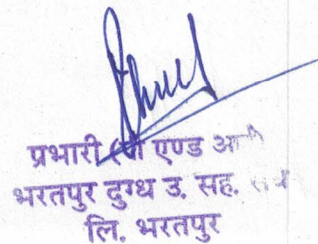 प्रभारी एण्ड
भरतपुर दुग्ध उ. सह.
लि. भरतपुर